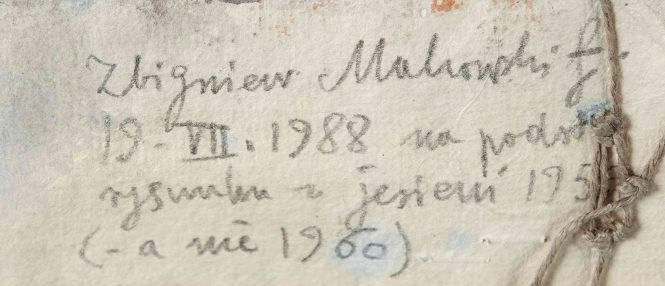 Zbigniew Makowski f.
19-VII.1988 na
rysunku z jesieni
(- a nie 1960)